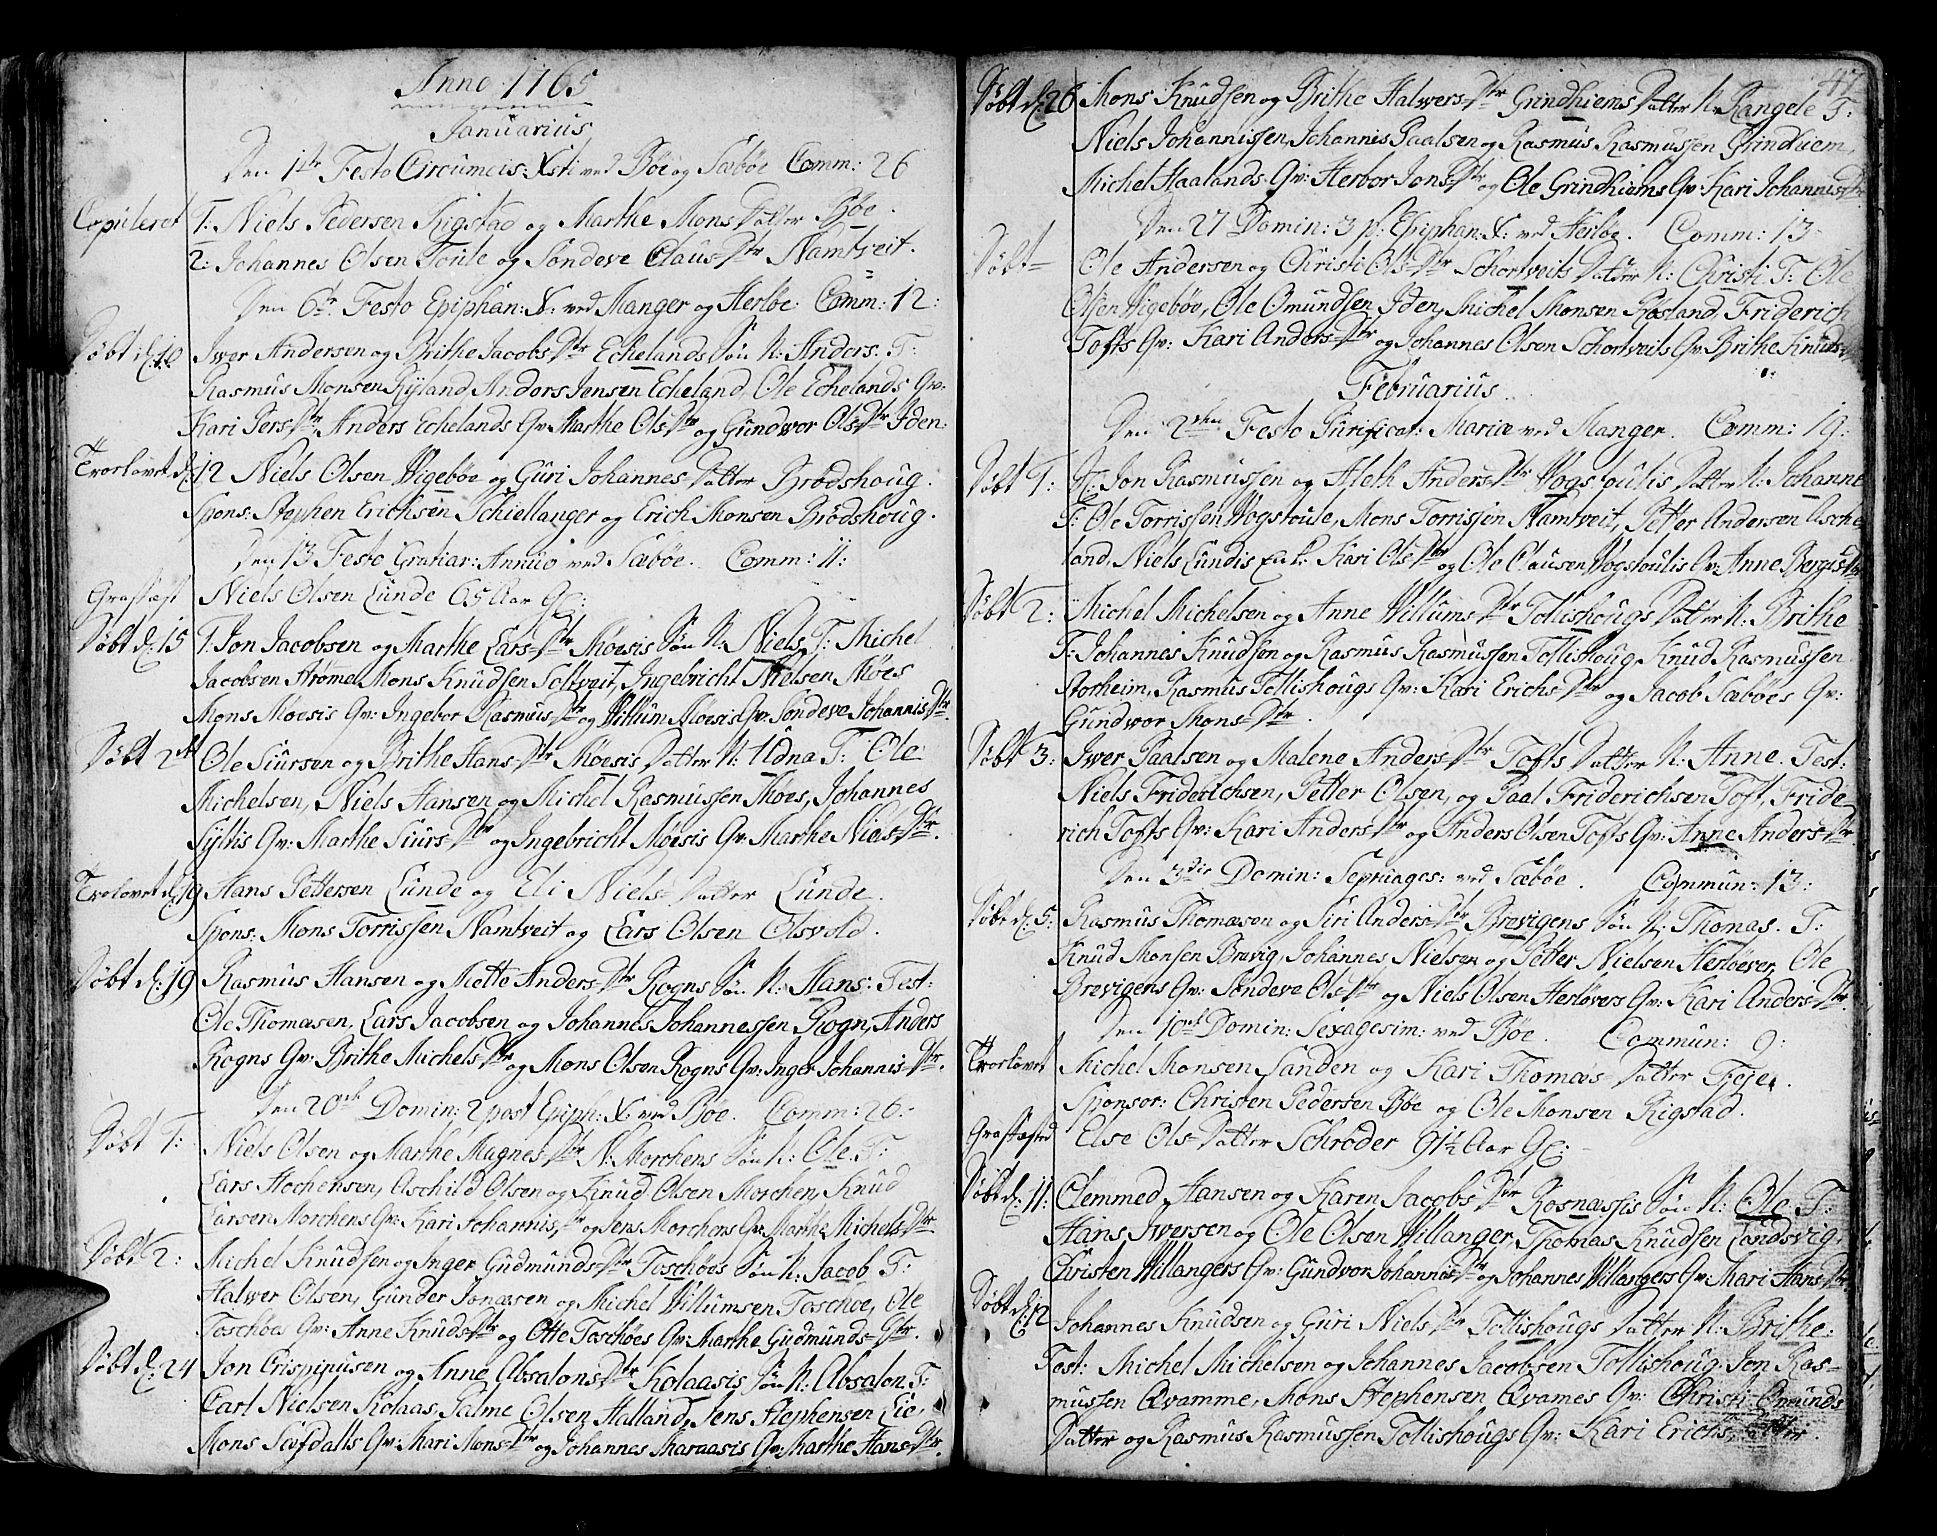 Anno 1765
Januarius
Den 1ste Festo Circumcis: Xsti ved Bøe og Sæbøe Comm: 26
Copuleret 1. Niels Pedersen Rigstad og Marthe Mons Datter Bøe.
2: Johannes Olsen Toule og Søndeve Claus-Dtr Namtveit.
Den 6te Festo Epiphan: X: ved Manger og Herløe. Comm: 12:
Døbt d: 10 Iwer Andersen og Brithe Jacobs Dtr Echelands Søn N: Anders. T:
Rasmus Monsen Ryland, Anders Jensen Echeland, Ole Echelands Qv:
Kari Pers-Dtr, Anders Echelands Qv: Marthe Ols Dtr og Gundwor Ols Dtr Iden:
Troelovet d: 12 Niels Olsen Wigebøe og Guri Johannes Datter Brødshoug.
Spons: Stephen Erichsen Schiellanger og Erich Monsen Brødshoug.
Den 13 Festo Gratiar: Annuo ved Sæbøe. Comm: 11:
Grafæst Niels Olsen Lunde 65 Aar Gl:
Døbt d: 15 1. Jon Jacobsen og Marthe Lars-Dtr Moesis Søn N: Niels. T: Michel
Jacobsen Mons Knudsen Soltveit, Ingebricht Nielsen Moes
Mons Moesis Qv: Ingebor Rasmus Dtr og Willum Moesis Qv: Søndeve Johannis Dtr.
Døbt 2de Ole Siursen og Brithe Hans-Dtr Moesis Datter N: Udna T: Ole
Michelsen, Niels Hansen og Michel Rasmussen Moes, Johannes
Syltis Qv: Marthe Siurs-Dtr og Ingebricht Moesis Qv: Marthe Niels-Dtr.
Trolovet d: 19 Hans Pettersen Lunde og Eli Niels-Datter Lunde.
Spons: Mons Torrissen Namtveit og Lars Olsen Olsvold.
Døbt d: 19 Rasmus Hansen og Mette Anders-Dtr Rogns Søn N: Hans: Test:
Ole Thomæsen, Lars Jacobsen og Johannes Johannessen Rogn, Anders
Rogns Qv: Brithe Michels Dtr og Mons Olsen Rogns Qv: Inger Johannis-Dtr.
Den 20de Domin: 2 post Epiph: X: ved Bøe. Comm: 26:
Døbt 1: Niels Olsen og Marthe Magnes-Dtr N. Morchens Søn N: Ole. T:
Lars Hochensen, Aschild Olsen og Knud Olsen Morchen, Knud
Larsen Morchens Qv: Kari Johannis-Dtr og Jens Morchens Qv: Marthe Michels-Dtr
Døbt 2: Michel Knudsen og Inger Gudmunds-Dtr Toschøes Søn N: Jacob T:
Halwer Olsen, Gunder Jonæsen og Michel Willumsen Toschøe, Ole
Toschøes Qv: Anne Knuds-Dtr og Otte Toschøes Qv: Marthe Gudmunds-Dtr.
Døbt d: 24 Jon Crispinusen og Anne Absalons-Dtr Kolaasis Søn N: Absalon. T:
Carl Nielsen Kolaas, Salme Olsen Halland, Jens Stephensen Lie,
Mons Søfdalls Qv: Mari Mons-Dtr og Johannes Maraasis Qv: Marthe Hans-Dtr.
47
Døbt d: 26 Mons Knudsen og Brithe Halwers-Dtr Grindhiems Datter N: Rangele T:
Niels Johannissen, Johannis Paalsen og Rasmus Rasmussen Grindhiem,
Michel Haalands Qv: Herbor Jons-Dtr og Ole Grindhiems Qv: Kari Johannis Dtr
Den 27 Domin: 3 p: Epiphan: X: ved Herløe. Comm: 13
Døbt Ole Andersen og Christi Ols-Dtr Schortveits Datter N: Christi T: Ole
Olsen Wigebøe, Ole Omundsen Iden, Michel Monsen Røsland, Friderich
Tofts Qv: Kari Anders-Dtr og Johannes Olsen Schortveits Qv: Brithe Knuds-
Februarius.
Den 2den Festo Purificat: Mariæ ved Manger. Comm: 19:
Døbt 1: Jon Rasmussen og Aleth Anders-Dtr Wogstoulis Datter N: Johanne
T: Ole Torrissen Wogstoule, Mons Torrissen Namtveit, Petter Andersen Asche-
land, Niels Lundis Enke Kari Ols-Dtr og Ole Clausen Wogstoulis Qv: Anne Berges-Dtr
Døbt 2: Michel Michelsen og Anne Willums Dtr Tollishougs Datter N: Brithe
T: Johannes Knudsen og Rasmus Rasmussen Tollishoug, Knud Rasmussen
Storheim, Rasmus Tollishougs Qv: Kari Erichs Dtr og Jacob Sæbøes Qv:
Gundwor Mons-Dtr.
Døbt 3: Iwer Paalsen og Malene Anders-Dtr Tofts Datter N: Anne. Test:
Niels Friderichsen, Petter Olsen, og Paal Friderichsen Toft, Fride-
rich Tofts Qv: Kari Anders-Dtr og Anders Olsen Tofts Qv: Anne Anders-Dtr
Den 3die Domin: Septuages: ved Sæbøe. Commun: 13:
Døbt d: 5: Rasmus Thomæsen og Siri Anders-Dtr Brevigens Søn N: Thomas. T:
Knud Monsen Brevig, Johannes Nielsen og Petter Nielsen Herløever, Ole
Brevigens Qv: Søndeve Ols-Dtr og Niels Olsen Herløvers Qv: Kari Anders-Dtr.
Den 10de Domin: Sexagesim: ved Bøe. Commun: 9:
Troelovet Michel Monsen Sanden og Kari Thomæs-Datter Feje.
Sponsor: Christen Pedersen Bøe og Ole Monsen Rigstad.
Grafæsted Else Ols-Datter Schrøder 91½ Aar Gl:
Døbt d: 11: Clemmed Hansen og Karen Jacobs-Dtr Rosnæssis Søn N: Ole. T:
Hans Iwersen og Ole Olsen Willanger, Thomas Knudsen Landsvig,
Christen Willangers Qv: Gundvor Johannis Dtr og Johannes Willangers Qv: Mari Hans-Dtr.
Døbt d: 12 Johannes Knudsen og Guri Niels Dtr Tollishougs Datter N: Brithe:
Test: Michel Michelsen og Johannes Jacobsen Tollishoug, Jon Ras-
mussen Qvamme, Mons Stephensen Qvames Qv: Christi Omunds
Datter og Rasmus Rasmussen Tollishougs Qv: Kari Erichs Datter.